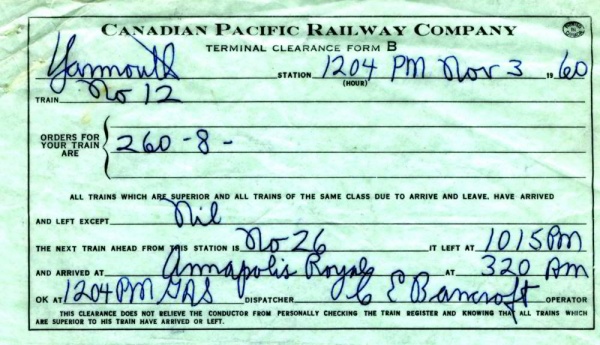 CANADIAN PACIFIC RAILWAY COMPANY
TERMINAL CLEARANCE FORM B
Yarmouth STATION 1204 PM Nov 3 1960
(HOUR)
TRAIN No 12
ORDERS FOR
YOUR TRAIN 260-8-
ARE
ALL TRAINS WHICH ARE SUPERIOR AND ALL TRAINS OF THE SAME CLASS DUE TO ARRIVE AND LEAVE, HAVE ARRIVED
AND LEFT EXCEPT Nil
THE NEXT TRAIN AHEAD FROM THIS STATION IS No 26 IT LEFT AT 1015 PM
AND ARRIVED AT Annapolis Royal AT 320 AM
OK AT 1204 PM GAS DISPATCHER C E Bancroft OPERATOR
THIS CLEARANCE DOES NOT RELIEVE THE CONDUCTOR FROM PERSONALLY CHECKING THE TRAIN REGISTER AND KNOWING THAT ALL TRAINS WHICH
ARE SUPERIOR TO HIS TRAIN HAVE ARRIVED OR LEFT.